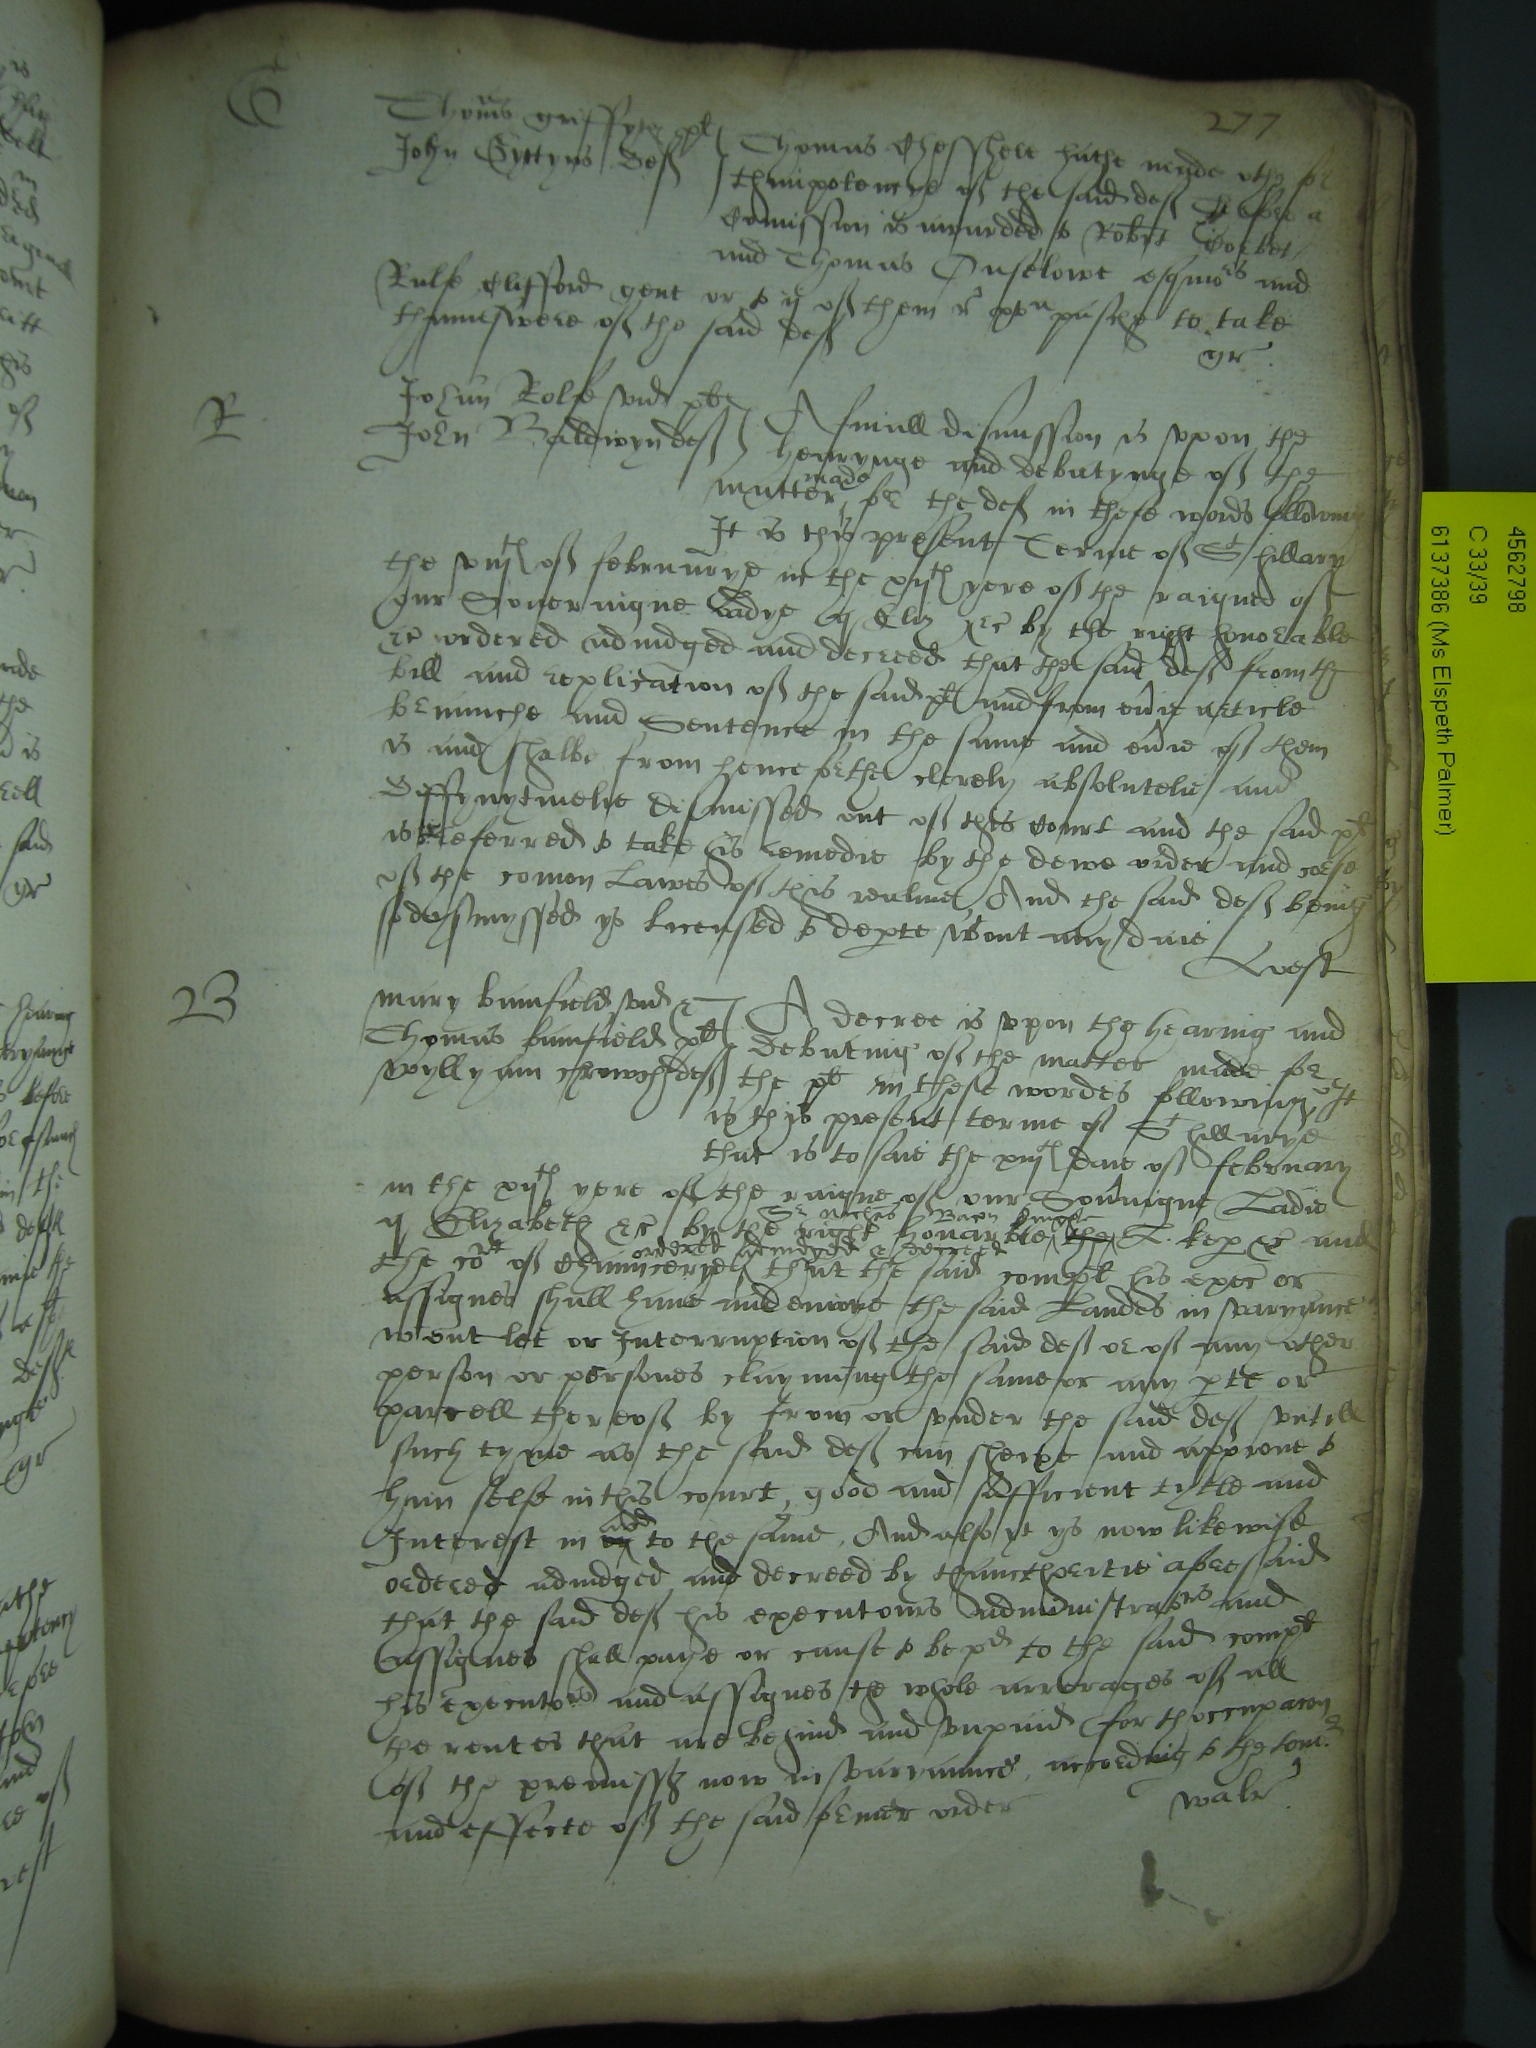 277
G
Thoms Griffyte plt
John Gyttyns deft
Thomas Chesshere hathe made othe for
thimpotencye of the said deft Therfore a
Comission is awarded to Robt Corbet
and Thomas Onselowe esquiors and
Rafe Clifford gent or to ij of them to take
thaunswere of the said deft
gr
R
Johan Rolfe vid plt
John Baldwyn deft
A finall dismission is vpon the
hearynge and debatynge of the
matter made for the deft in these words followinge
It is this present Terme of St hillary
the viijth of februarye in the xijth yere of the raigne of
our Soueraigne Ladye q Eliz &c by the right honorable
&c ordered adiudged and decreed that the said deft from the
bill and replication of the said plt and from euie article
braunche and Sentence in the same and euie of them
is and shalbe from henceforthe clerely absolutelie and
deffynytiuelie dismissed out of this Court and the said plt
is referred to take is remedie by the dewe order and corse
of the comon Lawes of this realme And the said deft being
so dysmyssed ys licensed to depte wout any daie
West
B
Mary bamfield vid &
Thomas bamfield plt
Wyllyam deft
A decree is vpon the hearing and
debating of the matter made for
the plt in these wordes following It
is this present terme of St hillarye
that is to saie the xiijth daie of february
in the xijth yere of the raigne of our Souaigne Ladie
q Elizabeth &c by the right honarble Sr Nichas Bacon knight the L. kep &c and
the cort of Chauncerye ordered adiudged & decreed that the said complt his exec or
assignes shall haue and enioye the said Landes in varyaunce
wout let or Interruption of the said deft or of any other
person or persones clayming the same or any pte or
parcell thereof by from or vnder the said deft vntill
such tyme as the said deft can shewe and approue to
hym selfe in this court, good and sufficient tytle and
Interest in and to the same. And also yt ys now likewise
ordered adiudged and decreed by thaucthoritie aforesaid
that the said deft his executours administrators and
assignes shall paye or cause to be pd to the said complt
his executors and assignes the whole arrerages of all
the rentes that are behind and vnpaid for thoccupacon
of the premisses now in varyaunce, according to the tenor
and effecte of the said former order
walr
4562798
C 33/39
6137386 (Ms Elspeth Palmer)